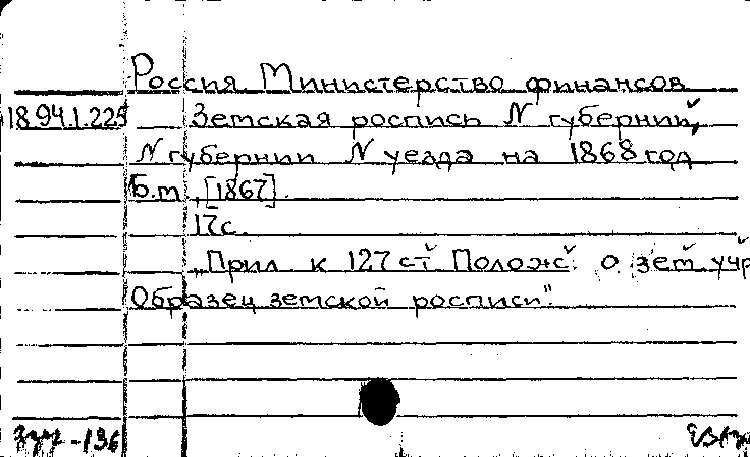 Россия. Министерство финансов
18.94.1.225 Земская роспись N губернии,
N губернии N уезда на 1868 год
Б.м., [1867].
17с.
„Прил. к 127 ст. Полож. о зем. учр.
Образец земской росписи".
-136